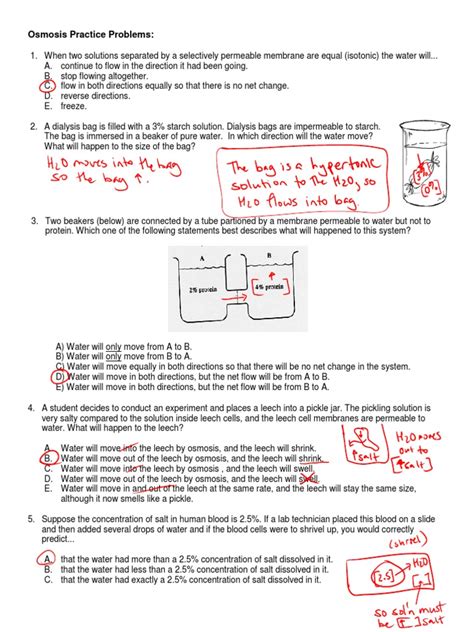 Osmosis Practice Problems:
1. When two solutions separated by a selectively permeable membrane are equal (isotonic) the water will...
A. continue to flow in the direction it had been going.
B. stop flowing altogether.
C. flow in both directions equally so that there is no net change.
D. reverse directions.
E. freeze.
2. A dialysis bag is filled with a 3% starch solution. Dialysis bags are impermeable to starch.
The bag is immersed in a beaker of pure water. In which direction will the water move?
What will happen to the size of the bag?
H2O moves into the bag
so the bag ↑.
The bag is a hypertonic
solution to the H2O, so
H2O flows into bag
[3%]
[0%]
3. Two beakers (below) are connected by a tube partioned by a membrane permeable to water but not to
protein. Which one of the following statements best describes what will happened to this system?
A B
2% protein
4% protein
A) Water will only move from A to B.
B) Water will only move from B to A.
C) Water will move equally in both directions so that there will be no net change in the system.
D) Water will move in both directions, but the net flow will be from A to B.
E) Water will move in both directions, but the net flow will be from B to A.
4. A student decides to conduct an experiment and places a leech into a pickle jar. The pickling solution is
very salty compared to the solution inside leech cells, and the leech cell membranes are permeable to
water. What will happen to the leech?
A. Water will move into the leech by osmosis, and the leech will shrink.
B. Water will move out of the leech by osmosis, and the leech will shrink.
C. Water will move into the leech by osmosis , and the leech will swell.
D. Water will move out of the leech by osmosis, and the leech will swell.
E. Water will move in and out of the leech at the same rate, and the leech will stay the same size,
although it now smells like a pickle.
↑salt
H2O moves
out to
[↑salt]
5. Suppose the concentration of salt in human blood is 2.5%. If a lab technician placed this blood on a slide
and then added several drops of water and if the blood cells were to shrivel up, you would correctly
predict...
(shrivel)
A. that the water had more than a 2.5% concentration of salt dissolved in it.
B. that the water had less than a 2.5% concentration of salt dissolved in it.
C. that the water had exactly a 2.5% concentration of salt dissolved in it.
[2.5]
→H2O
[↑]
so sol'n must
be [↑] salt